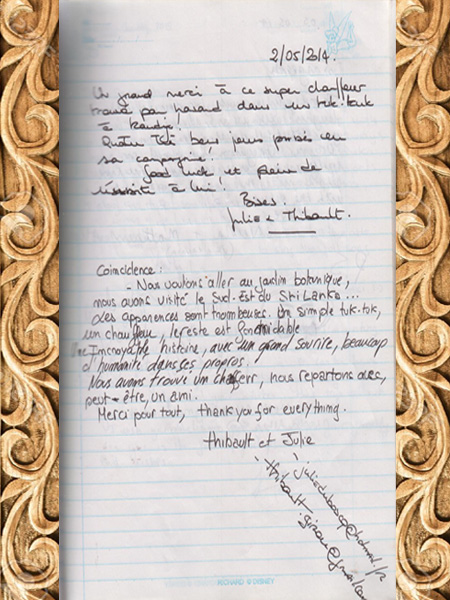 2/05/2014.
Un grand merci à ce super chauffeur
trouvé par hasard dans un tuk-tuk
à Kandy!
Quatre très beaux jours passés en
sa compagnie!
Good luck, et pleins de
réussite à lui!
Bises.
Julie & Thibault.
Coincidence:
- Nous voulons aller au jardin botanique,
nous avons visité le Sud-Est du Sri Lanka...
Les apparences sont trompeuses. Un simple tuk-tuk,
un chauffeur, le reste est formidable
Une Incroyable histoire, avec un grand sourire, beaucoup
d'humanité dans ses propos.
Nous avons trouvé un chauffeur, nous repartons avec,
peut-être, un ami.
Merci pour tout, thank you for everything.
Thibault et Julie
@hotmail.fr
@gmail.com